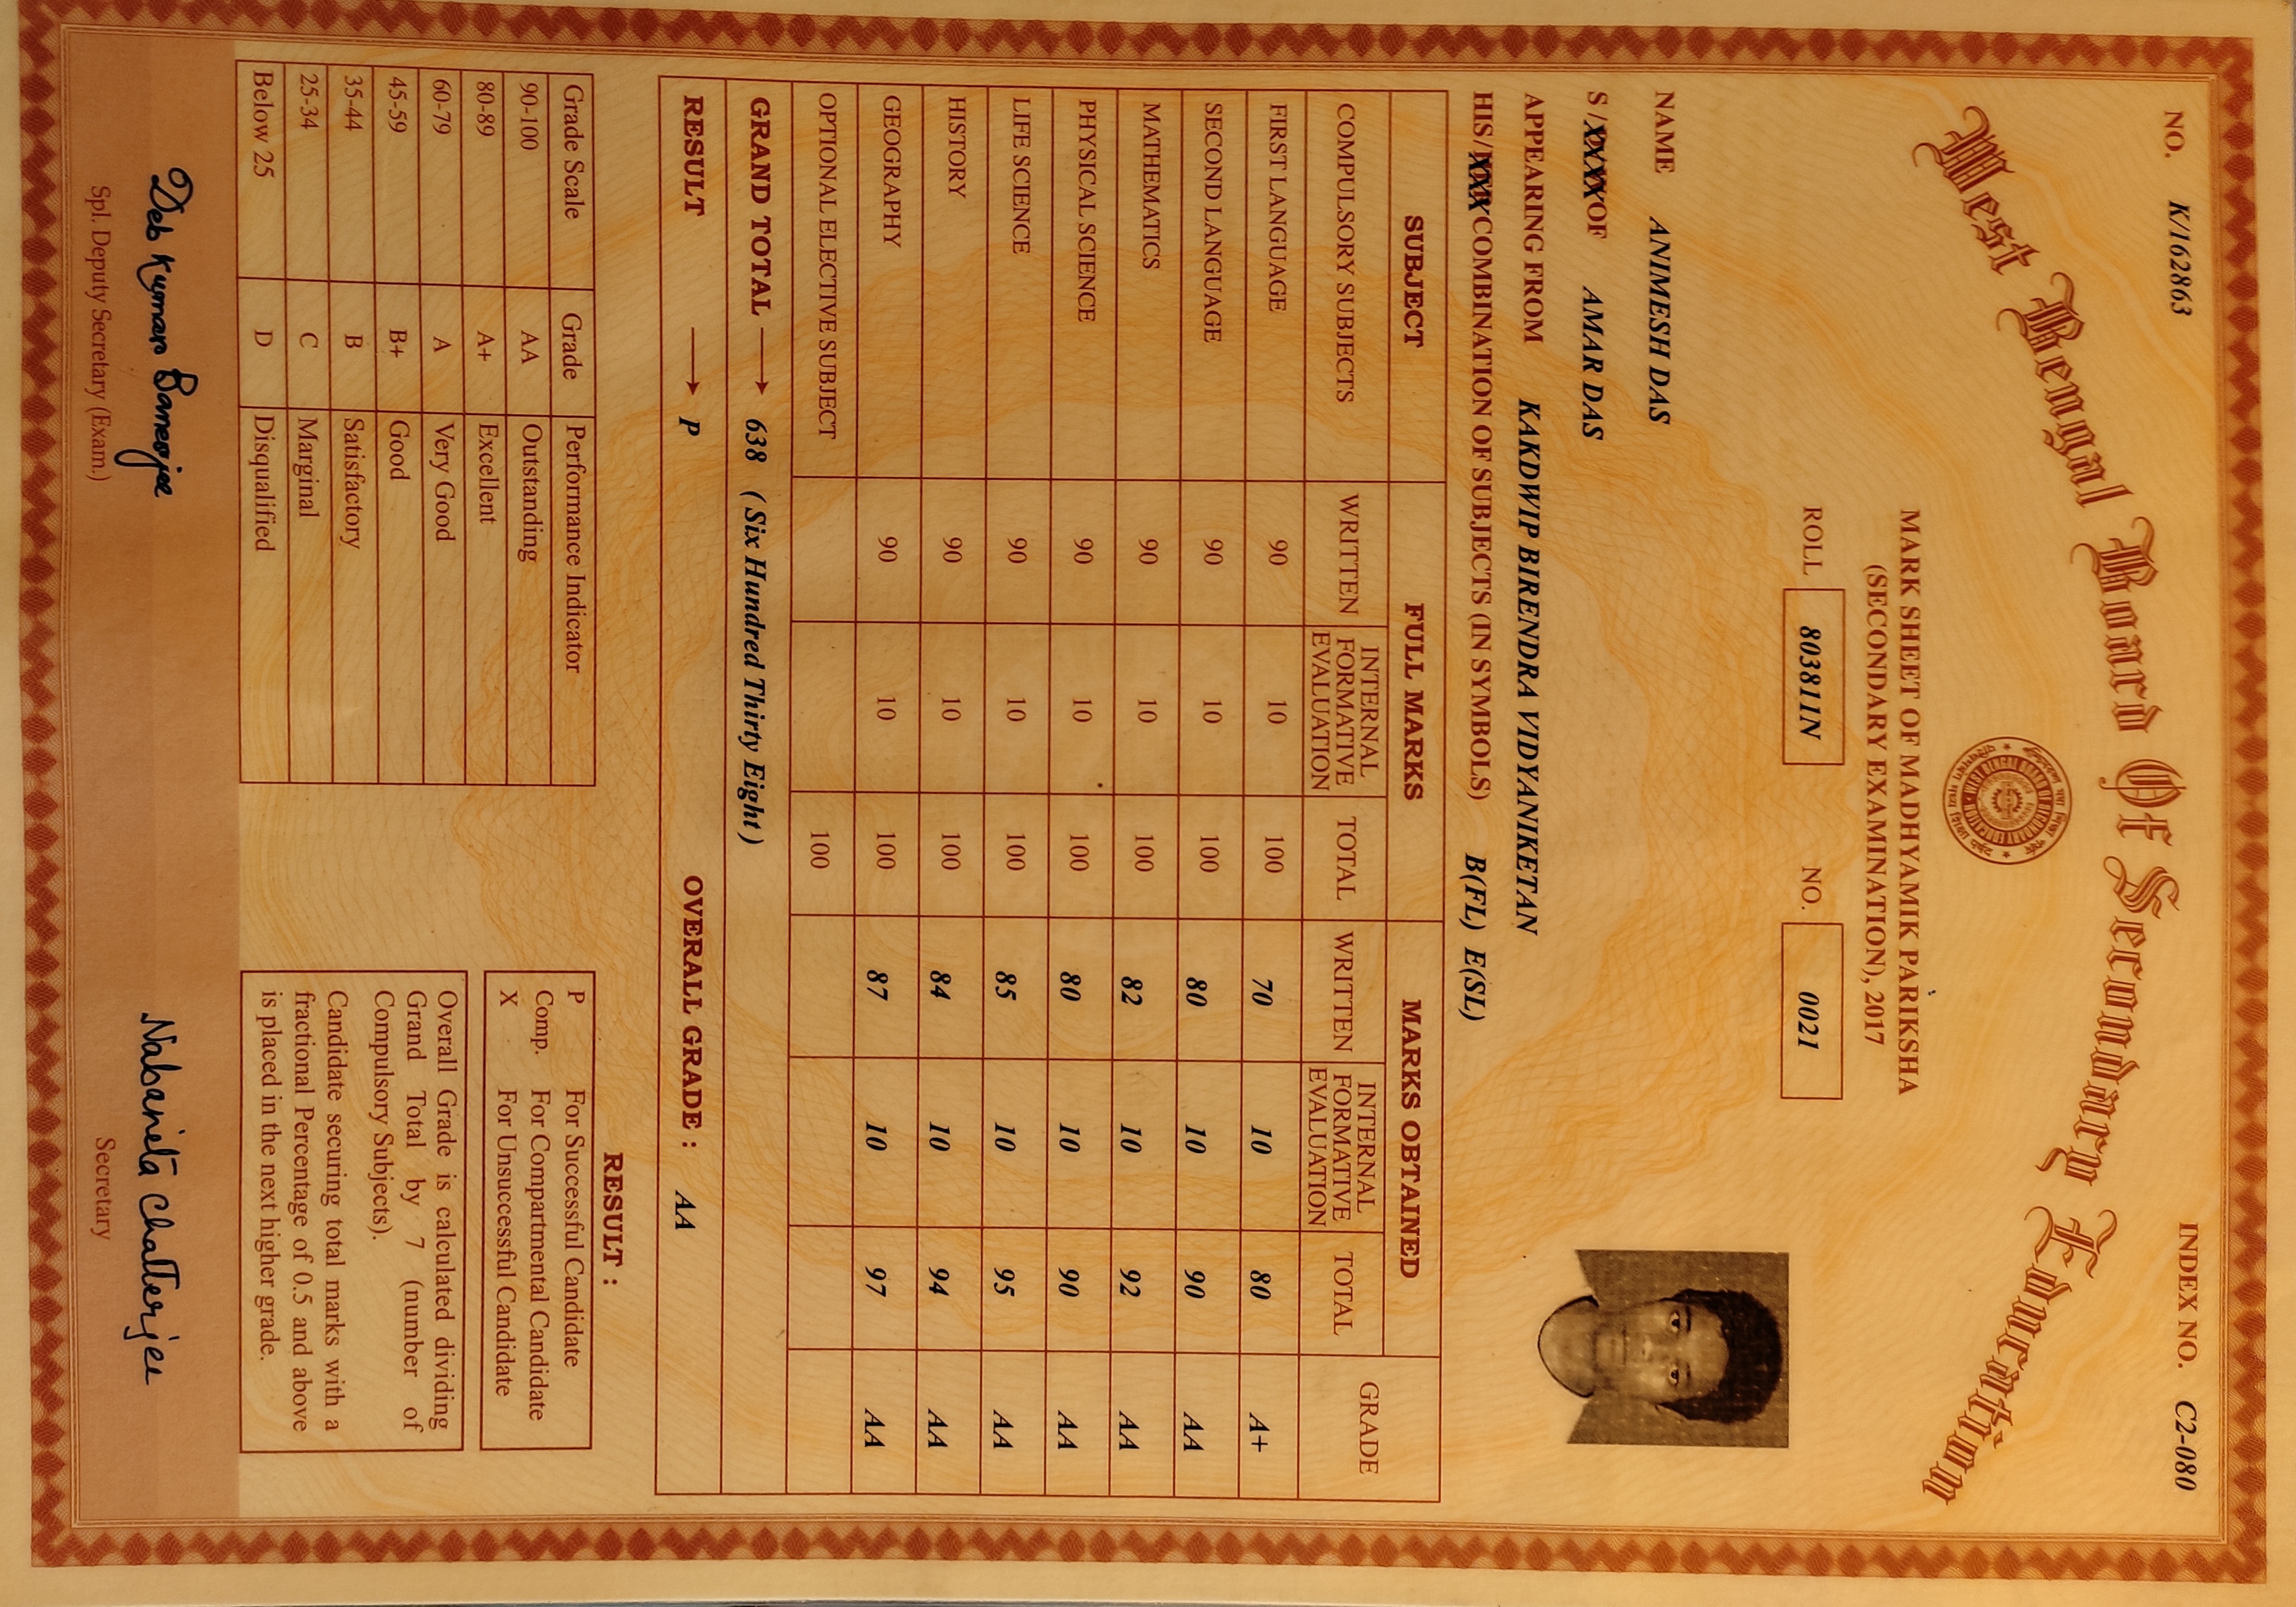 NO. K/162863 INDEX NO. C2-080
West Bengal Board Of Secondary Education
MARK SHEET OF MADHYAMIK PARIKSHA
(SECONDARY EXAMINATION), 2017
ROLL 803811N NO. 0021
NAME ANIMESH DAS
S/XXXXOF AMAR DAS
APPEARING FROM KAKDWIP BIRENDRA VIDYANIKETAN
HIS/XXXCOMBINATION OF SUBJECTS (IN SYMBOLS) B(FL) E(SL)
SUBJECT FULL MARKS MARKS OBTAINED GRADE
COMPULSORY SUBJECTS WRITTEN INTERNAL FORMATIVE EVALUATION TOTAL WRITTEN INTERNAL FORMATIVE EVALUATION TOTAL
FIRST LANGUAGE 90 10 100 70 10 80 A+
SECOND LANGUAGE 90 10 100 80 10 90 AA
MATHEMATICS 90 10 100 82 10 92 AA
PHYSICAL SCIENCE 90 10 100 80 10 90 AA
LIFE SCIENCE 90 10 100 85 10 95 AA
HISTORY 90 10 100 84 10 94 AA
GEOGRAPHY 90 10 100 87 10 97 AA
OPTIONAL ELECTIVE SUBJECT 100
GRAND TOTAL → 638 (Six Hundred Thirty Eight)
RESULT → P OVERALL GRADE : AA
Grade Scale Grade Performance Indicator
90-100 AA Outstanding
80-89 A+ Excellent
60-79 A Very Good
45-59 B+ Good
35-44 B Satisfactory
25-34 C Marginal
Below 25 D Disqualified
RESULT :
P For Successful Candidate
Comp. For Compartmental Candidate
X For Unsuccessful Candidate
Overall Grade is calculated dividing
Grand Total by 7 (number of
Compulsory Subjects).
Candidate securing total marks with a
fractional Percentage of 0.5 and above
is placed in the next higher grade.
Deb Kumar Banerjee
Spl. Deputy Secretary (Exam.)
Nabanita Chatterjee
Secretary